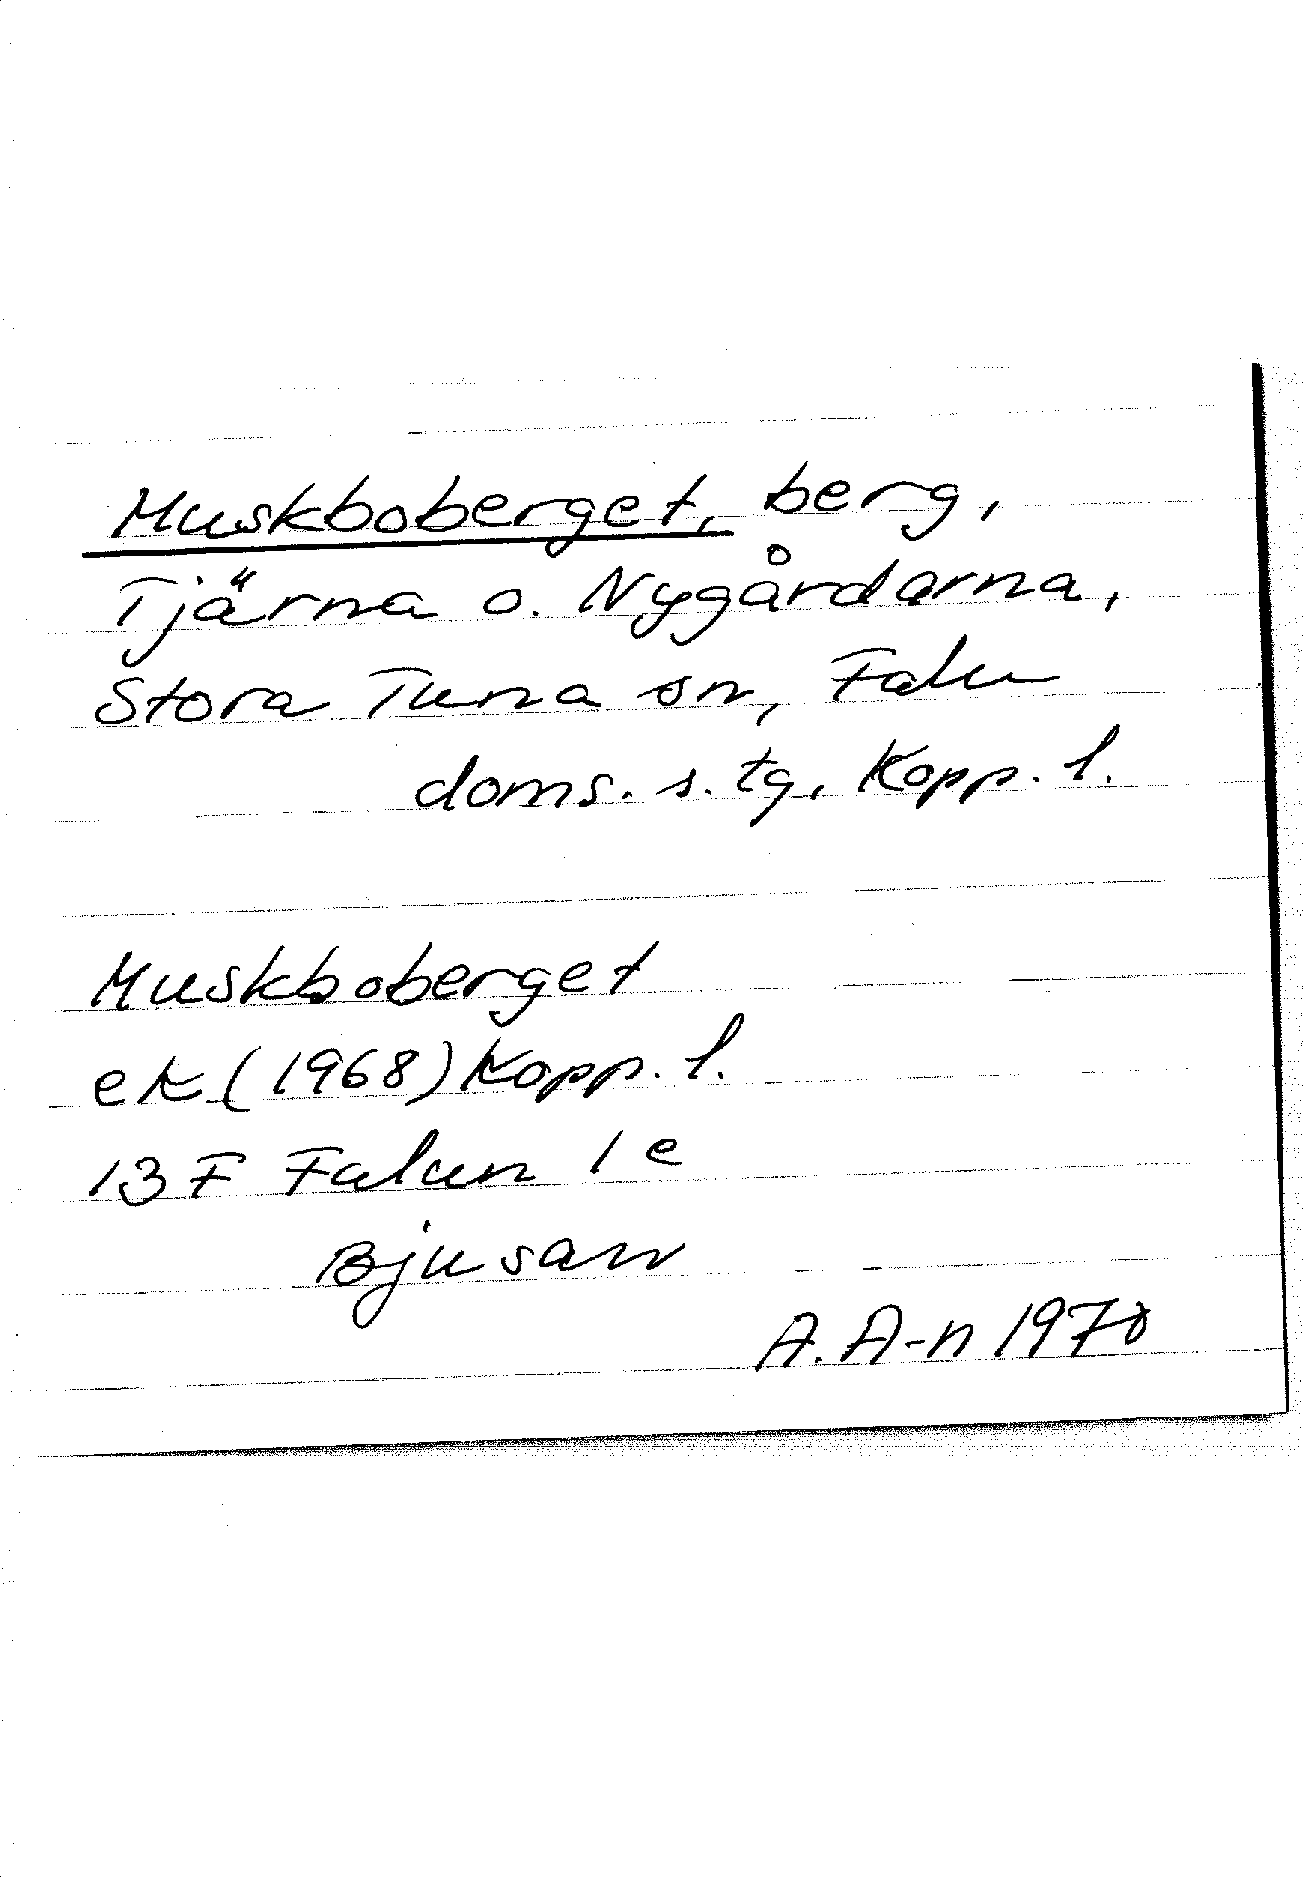 Muskboberget, berg,
Tjärna o. Nygårdarna,
Stora Tuna sn, Falu
doms. s. tg, Kopp. l.
Muskboberget
ek (1968) Kopp. l.
13 F Falun 1 e
Bjusarv
A. A-n 1970